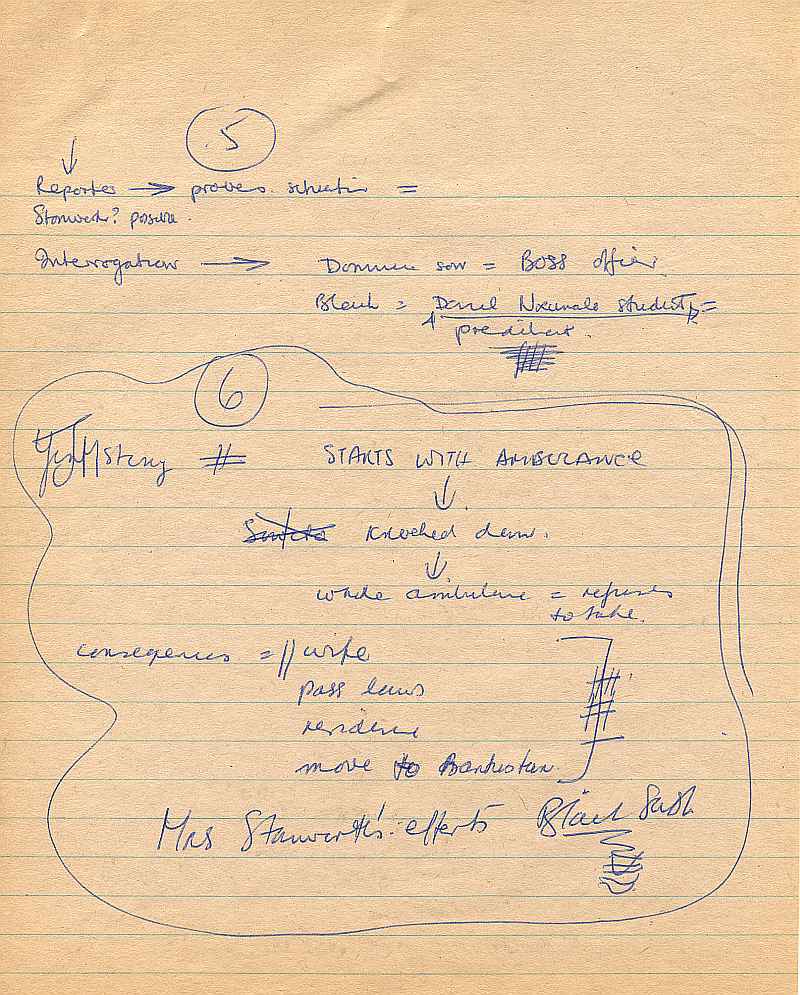 5
Reporter → proves situation =
Stanworth? possible.
Interrogation → Dominee son = BOSS officer
Black = student =
predikant.
6
Story # STARTS WITH AMBULANCE
↓
knocked down.
↓
white ambulance = refuses
to take.
consequences = // wife
pass laws
residence
move to Bantustan.
Mrs Stanworth's efforts Black Sash